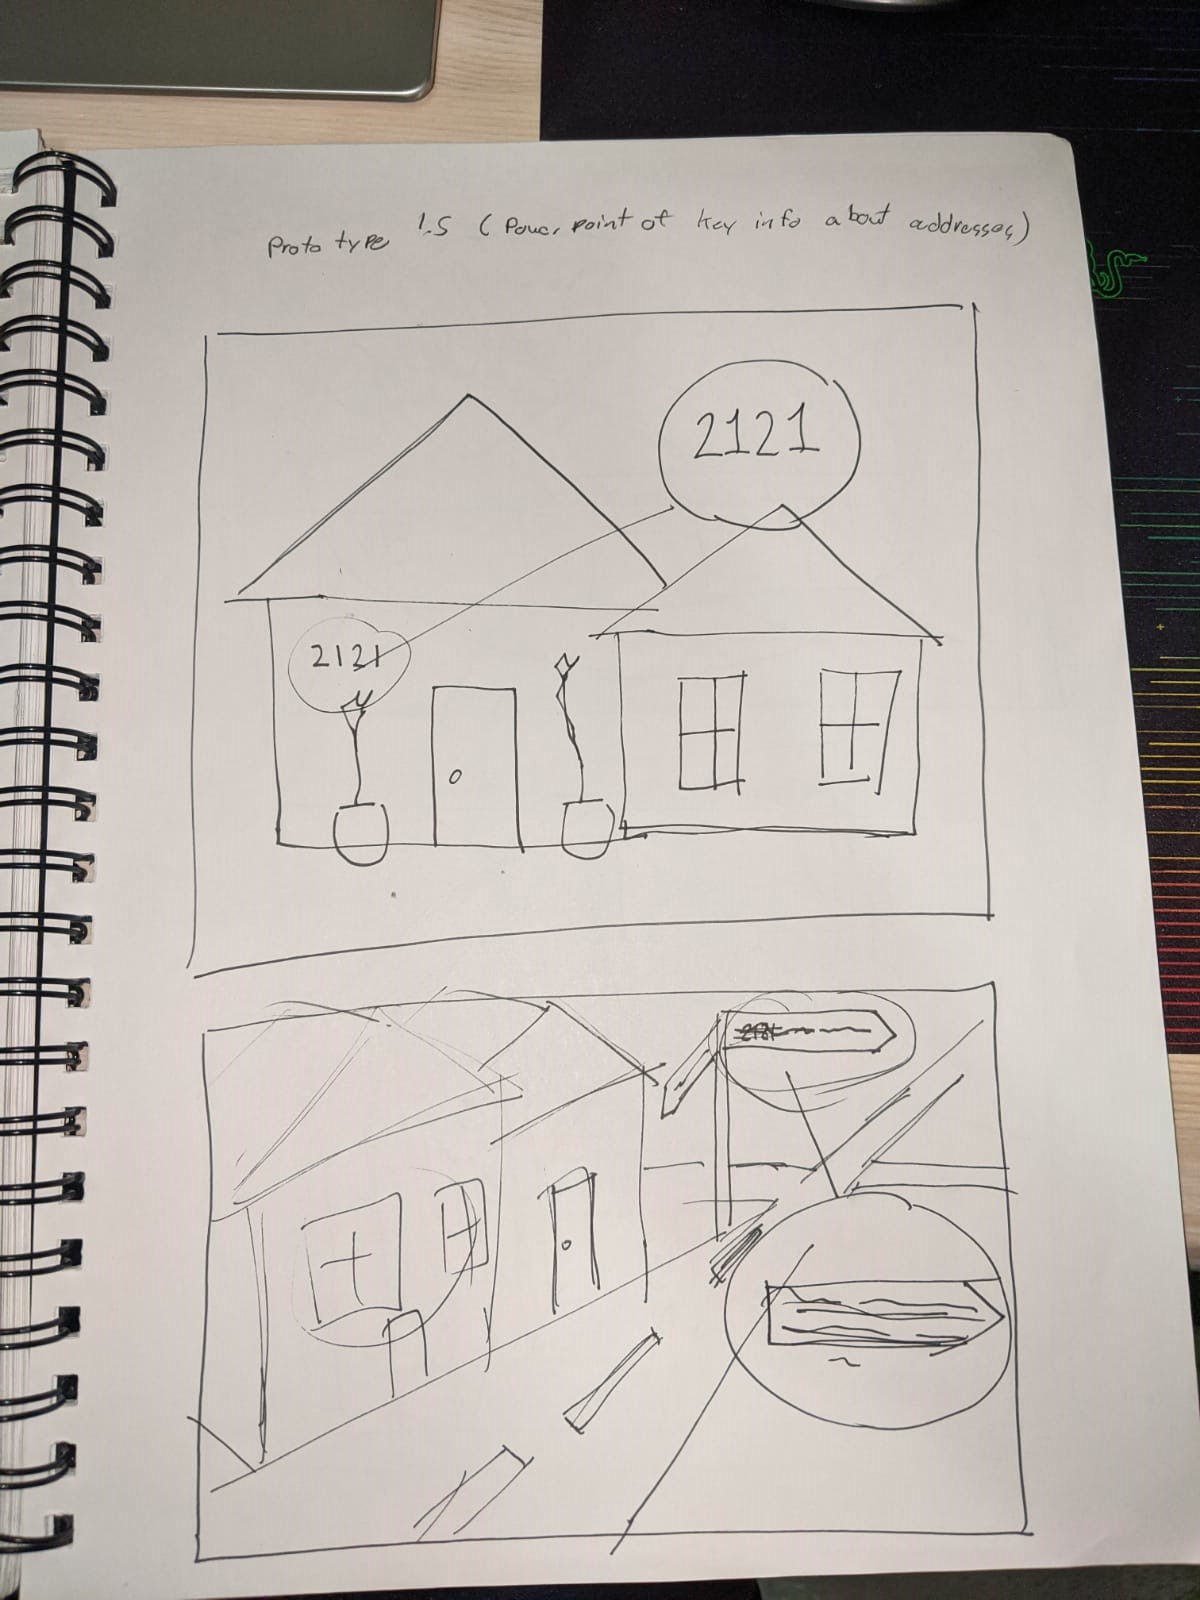 Prototype 1.5 (Powerpoint of key info about addresses)
2121
2121